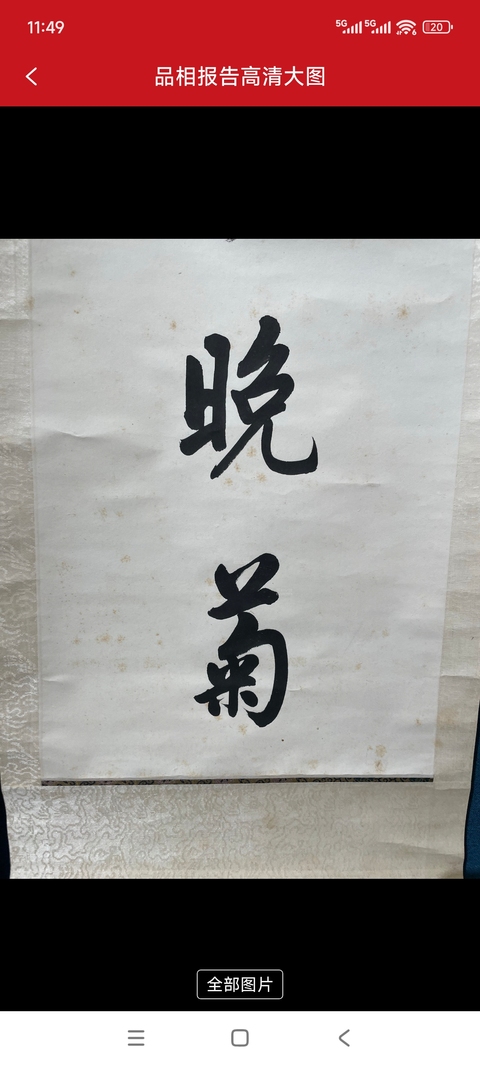 11:49
5G 5G 20
品相报告高清大图
晚
菊
全部图片